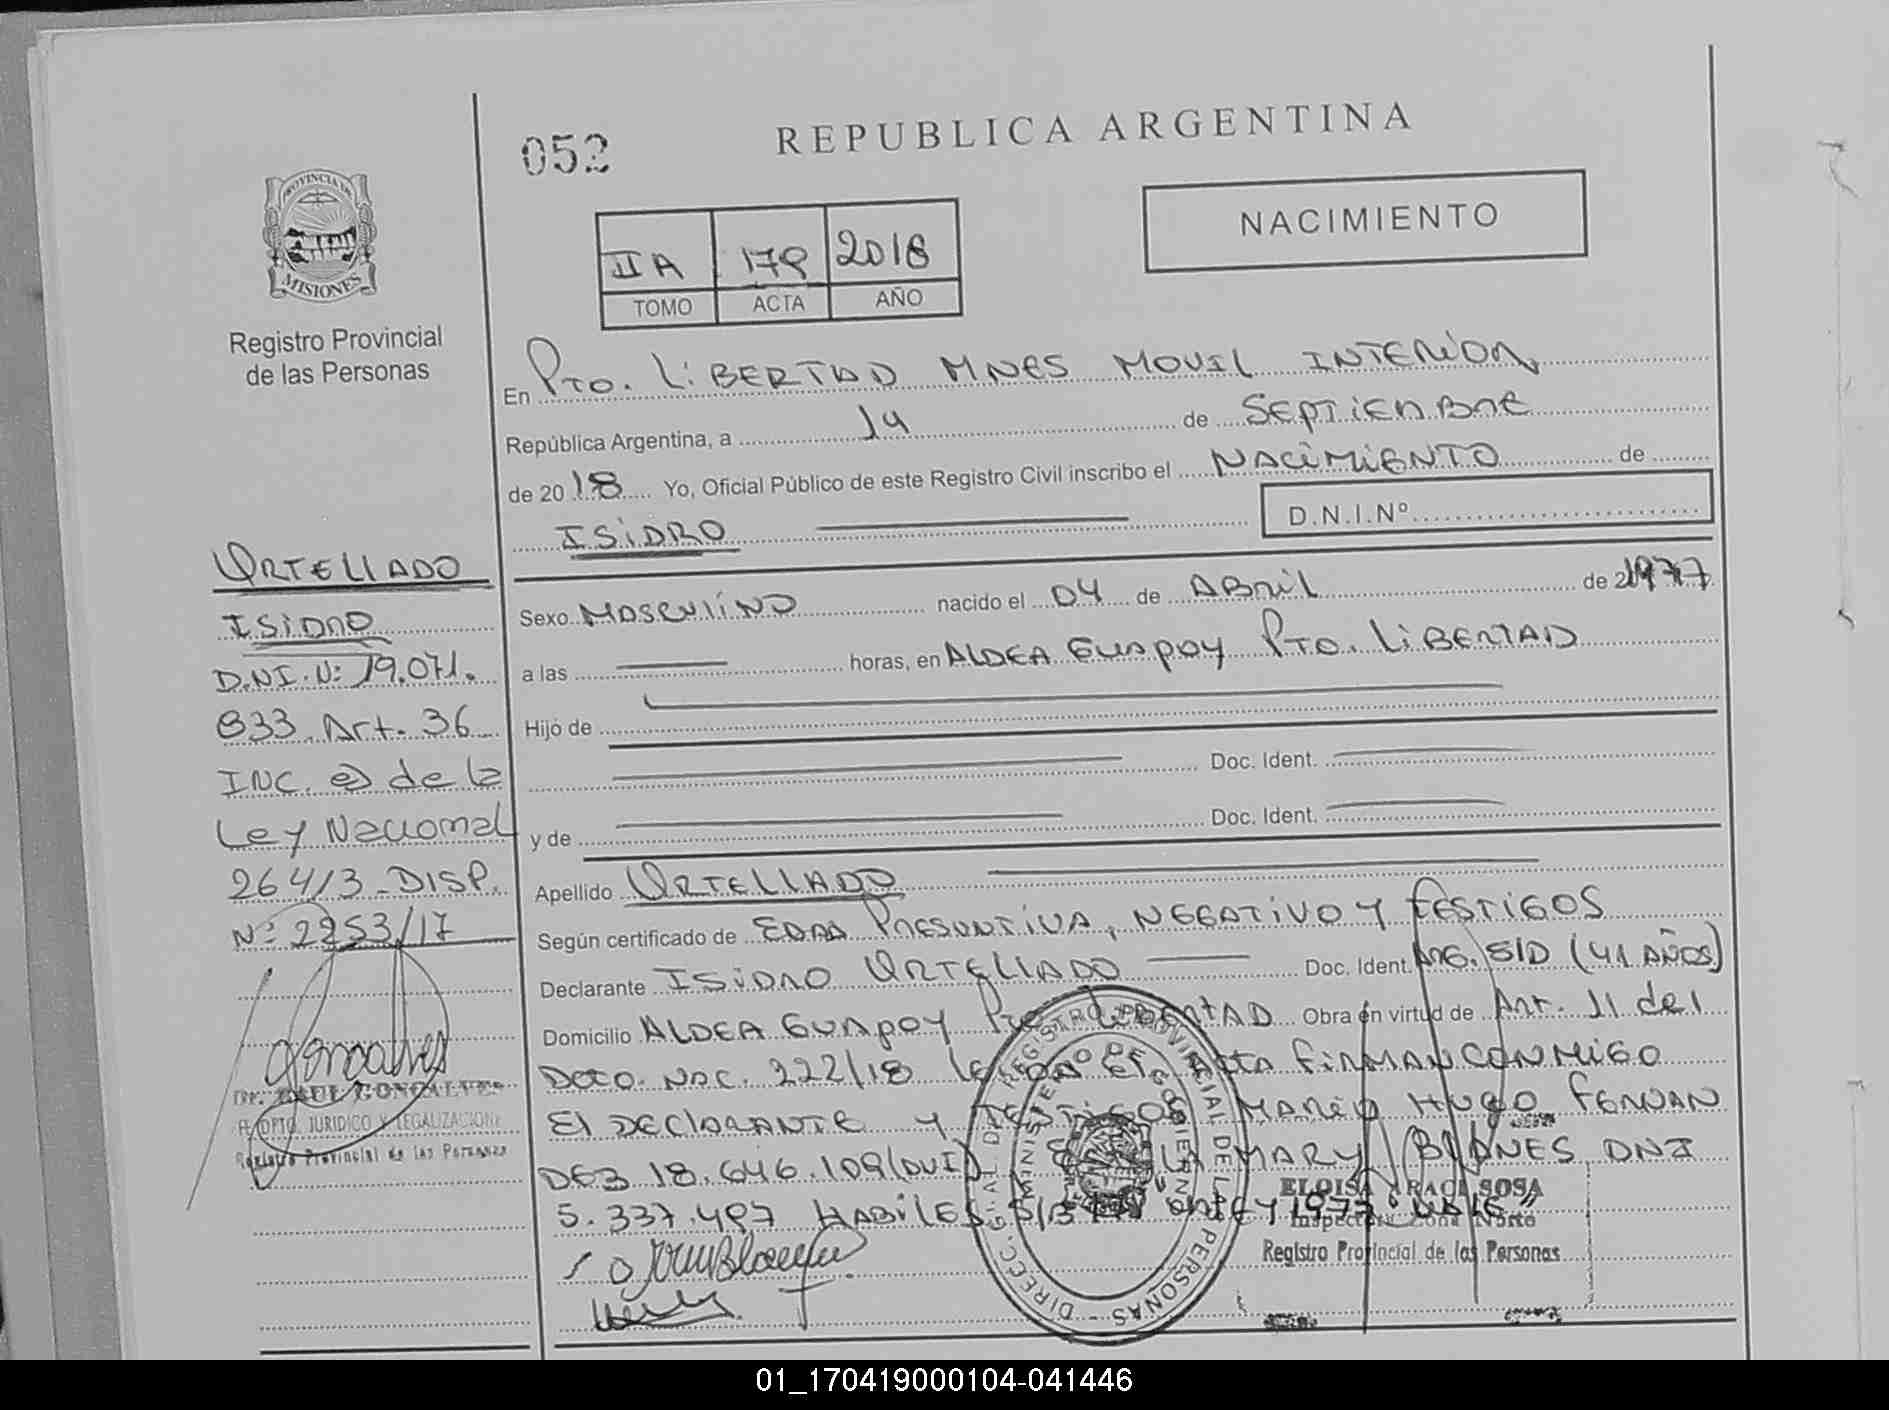 052
REPUBLICA ARGENTINA
NACIMIENTO
IIA 179 2018
TOMO ACTA AÑO
PROVINCIA DE
MISIONES
Registro Provincial
de las Personas
En Pto. LIBERTAD MNES MOVIL INTERIOR
República Argentina, a 14 de SEPTIEMBRE
de 2018 Yo, Oficial Público de este Registro Civil inscribo el NACIMIENTO de
ISIDRO D.N.I.Nº
Sexo MASCULINO nacido el 04 de ABRIL de 1977
a las horas, en ALDEA GUAPOY PTO. LIBERTAD
Hijo de
Doc. Ident.
y de Doc. Ident.
Apellido URTELLADO
Según certificado de EDAD PRESUNTIVA, NEGATIVO Y TESTIGOS
Declarante ISIDRO URTELLADO Doc. Ident. ARG. S/D (41 AÑOS)
Domicilio ALDEA GUAPOY PTO LIBERTAD Obra en virtud de Art. 11 del
Dcto. NAC. 222/18 EL ACTA FIRMAN CONMIGO
El DECLARANTE Y TESTIGOS MARIO HUGO FERNAN
DEZ 18.646.109 MARY BLANES DNI
5.337.497 HABILES 1977 VALE"
URTELLADO
ISIDRO
D.NI. N: 19.071.
833 Art. 36
INC. e) de la
Ley Nacional
26413 - DISP.
Nº 2253/17
Dr. RAUL GONCALVES
DPTO. JURIDICO Y LEGALIZACIONE
Registro Provincial de las Personas
DIREC. GRAL. DE REGISTRO PROVINCIAL DE LAS PERSONAS
MINISTERIO DE GOBIERNO
ELOISA GRACI SOSA
Inspectora Zona Norte
Registro Provincial de las Personas
01_170419000104-041446